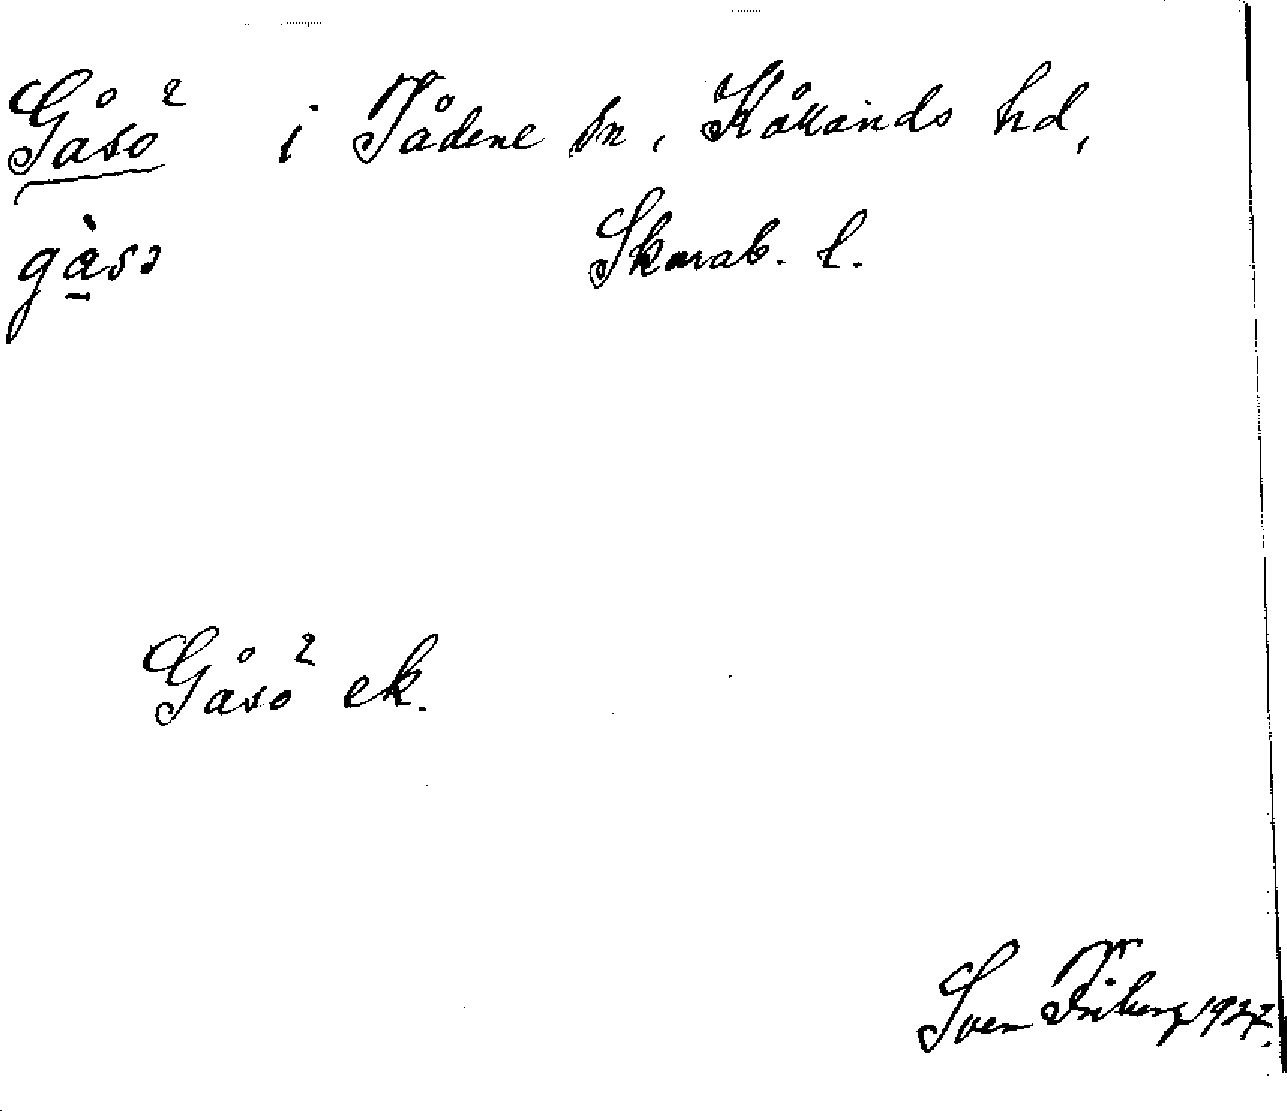 Gåsö i Tådene sn, Kållands hd,
gàsɔ Skarab. l.
Gåsö ek.
Sven Friberg 1927.